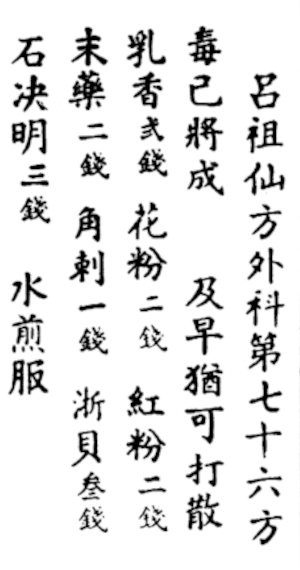 呂祖仙方外科第七十六方
毒已將成　及早猶可打散
乳香弍錢　花粉二錢　紅粉二錢
末藥二錢　角刺一錢　浙貝叁錢
石决明三錢　水煎服